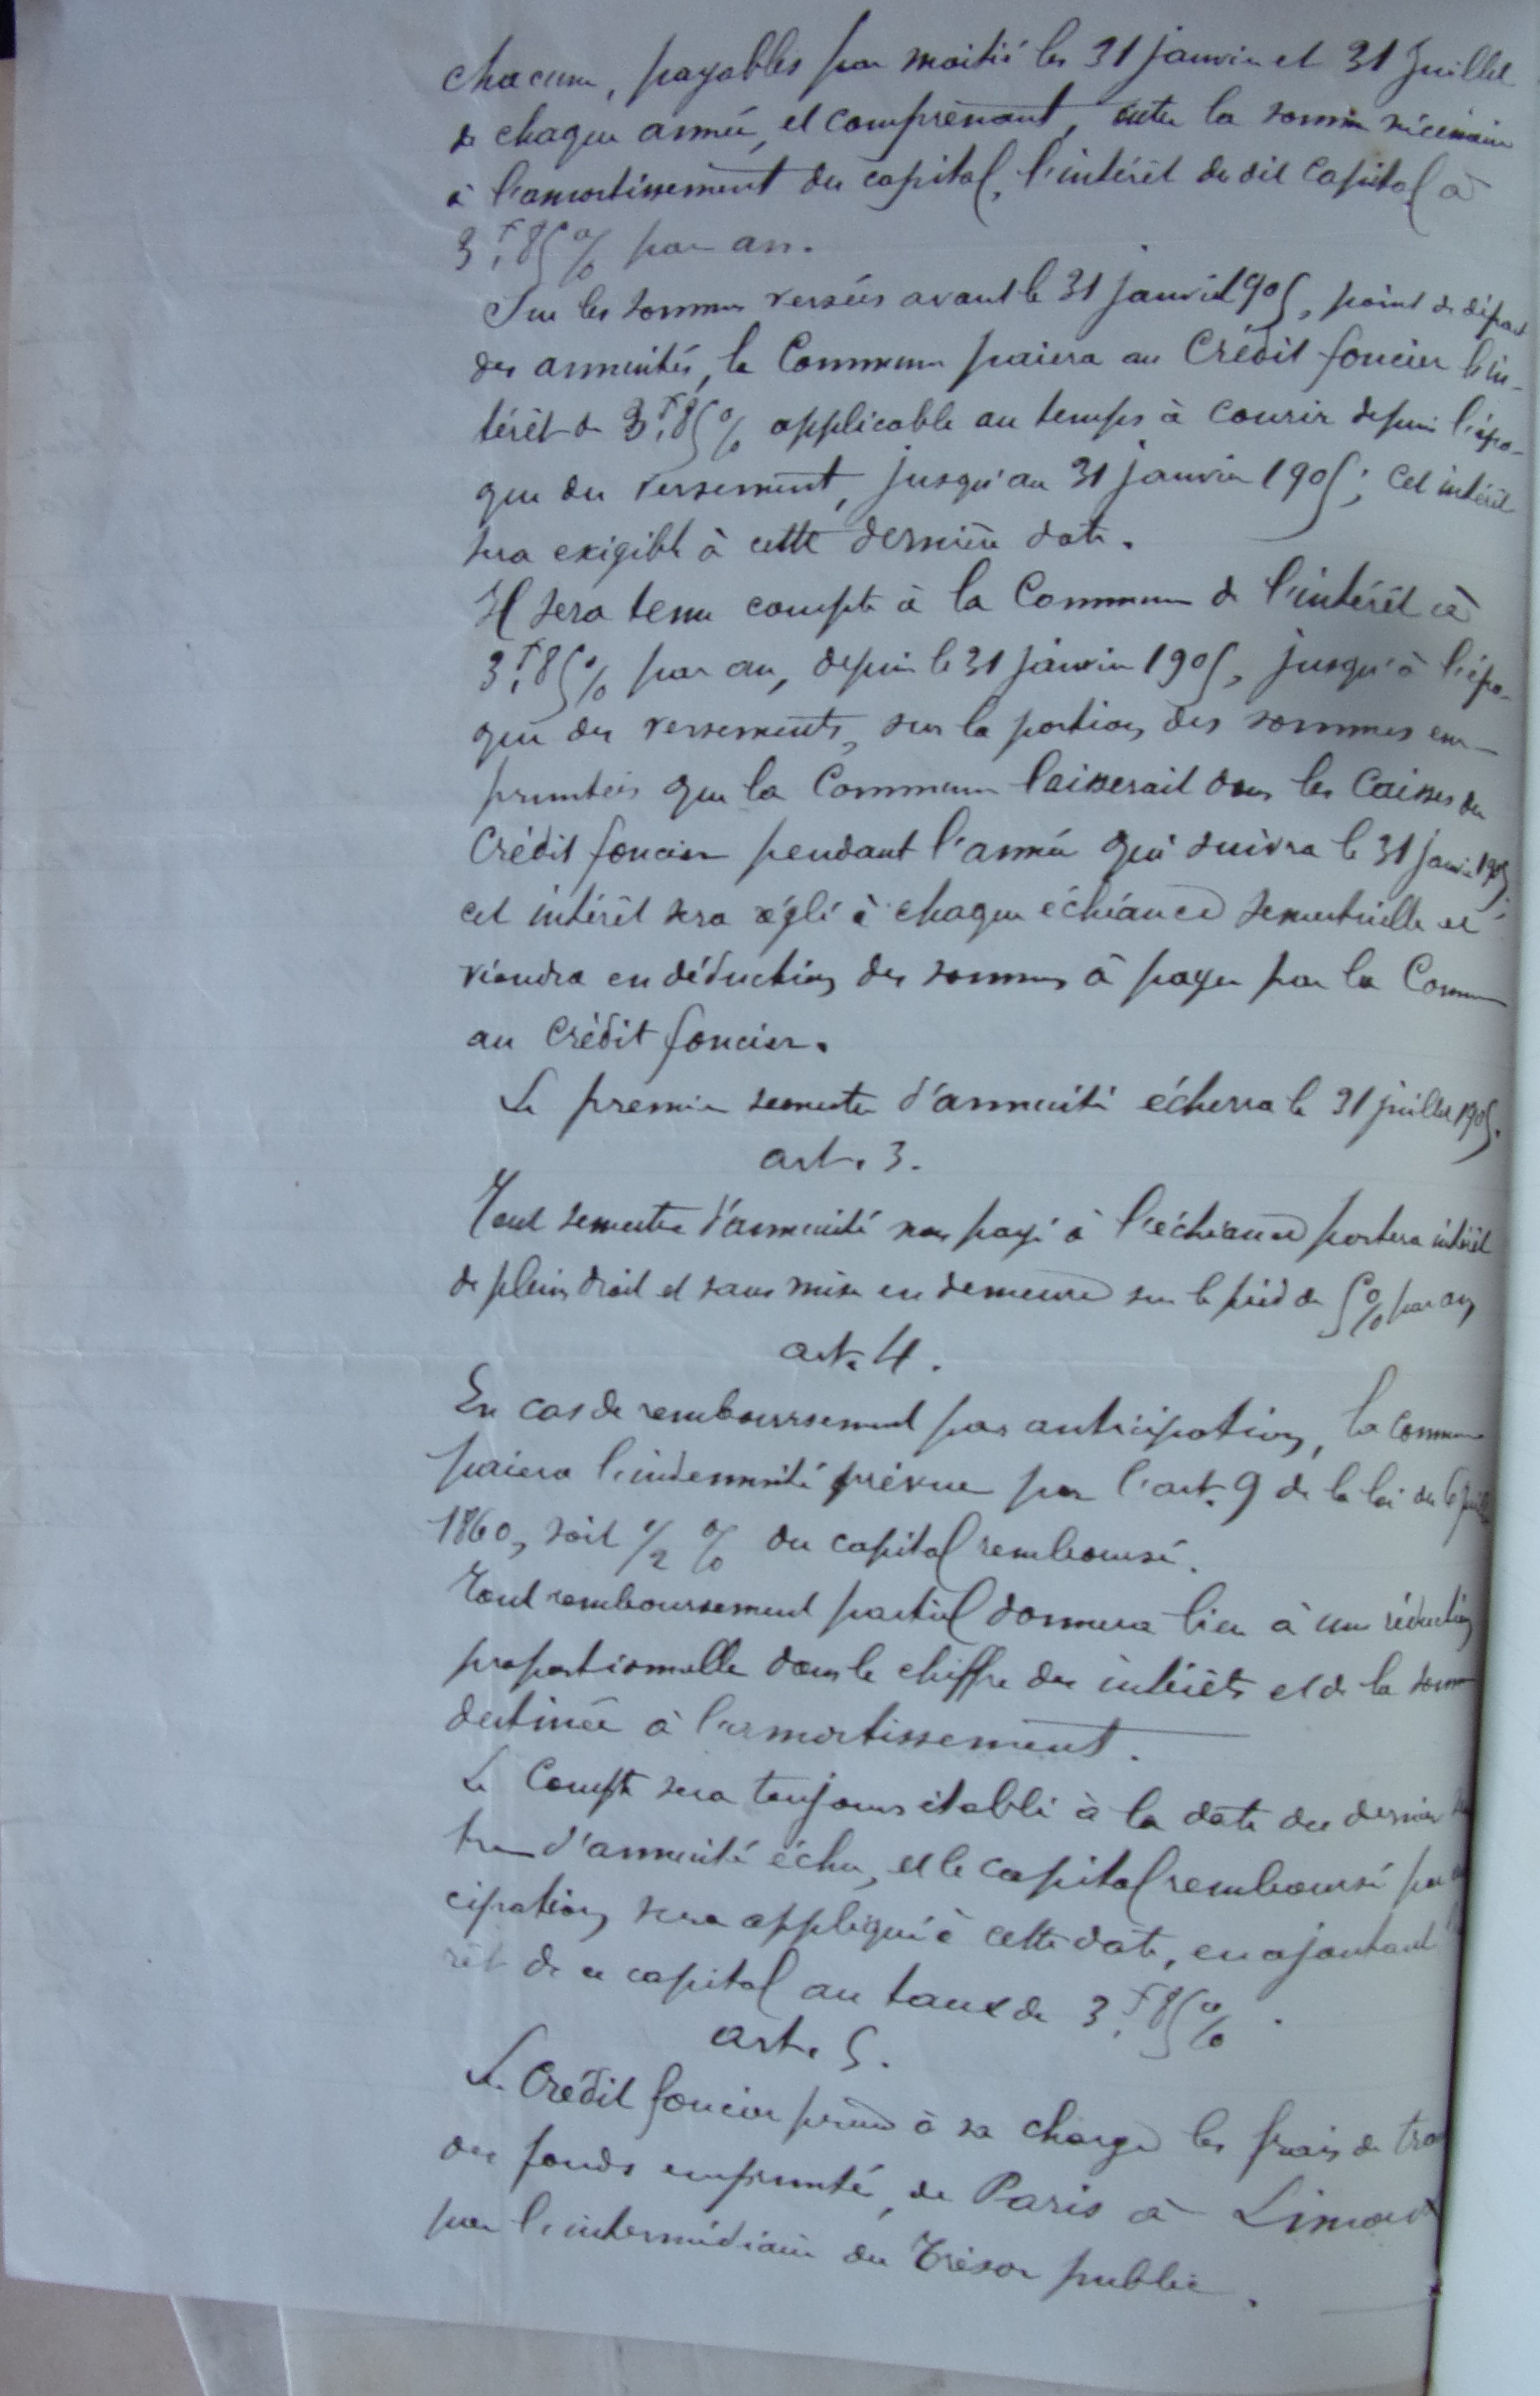 chacune, payables par moitié les 31 janvier et 31 Juillet
de chaque année, et comprenant, outre la somme nécessaire
à l'amortissement du capital, l'intérêt du dit capital à
3f,85 % par an.
Sur les sommes versées avant le 31 janvier 1905, point de départ
des annuités, la Commune paiera au Crédit foncier l'in-
térêt de 3f,85 % applicable au temps à courir depuis l'épo-
que du versement, jusqu'au 31 janvier 1905; cet intérêt
sera exigible à cette dernière date.
Il sera tenu compte à la Commune de l'intérêt à
3f,85 % par an, depuis le 31 janvier 1905, jusqu'à l'épo-
que des versements, sur la portion des sommes em-
pruntées que la Commune laisserait dans les Caisses du
Crédit foncier pendant l'année qui suivra le 31 janvier 1905;
cet intérêt sera réglé à chaque échéance semestrielle et
viendra en déduction des sommes à payer par la Commune
au Crédit foncier.
Le premier semestre d'annuité écherra le 31 juillet 1905.
art. 3.
Tout semestre d'annuité non payé à l'échéance portera intérêt
de plein droit et sans mise en demeure sur le pied de 5 % par an
art. 4.
En cas de remboursement par anticipation, la commune
paiera l'indemnité prévue par l'art. 9 de la loi du 6 juillet
1860, soit 1/2 % du capital remboursé.
Tout remboursement partiel donnera lieu à une réduction
proportionnelle dans le chiffre des intérêts et de la somme
destinée à l'armortissement.
Le Compte sera toujours établi à la date du dernier
tre d'annuité échu, et le capital remboursé par
cipation, sera appliqué à cette date, en ajoutant
rêt de ce capital au taux de 3f,85 %.
art. 5.
Le Crédit foncier prend à sa charge les frais de
des fonds emprunté, de Paris à
par l'intermédiaire du Trésor public.